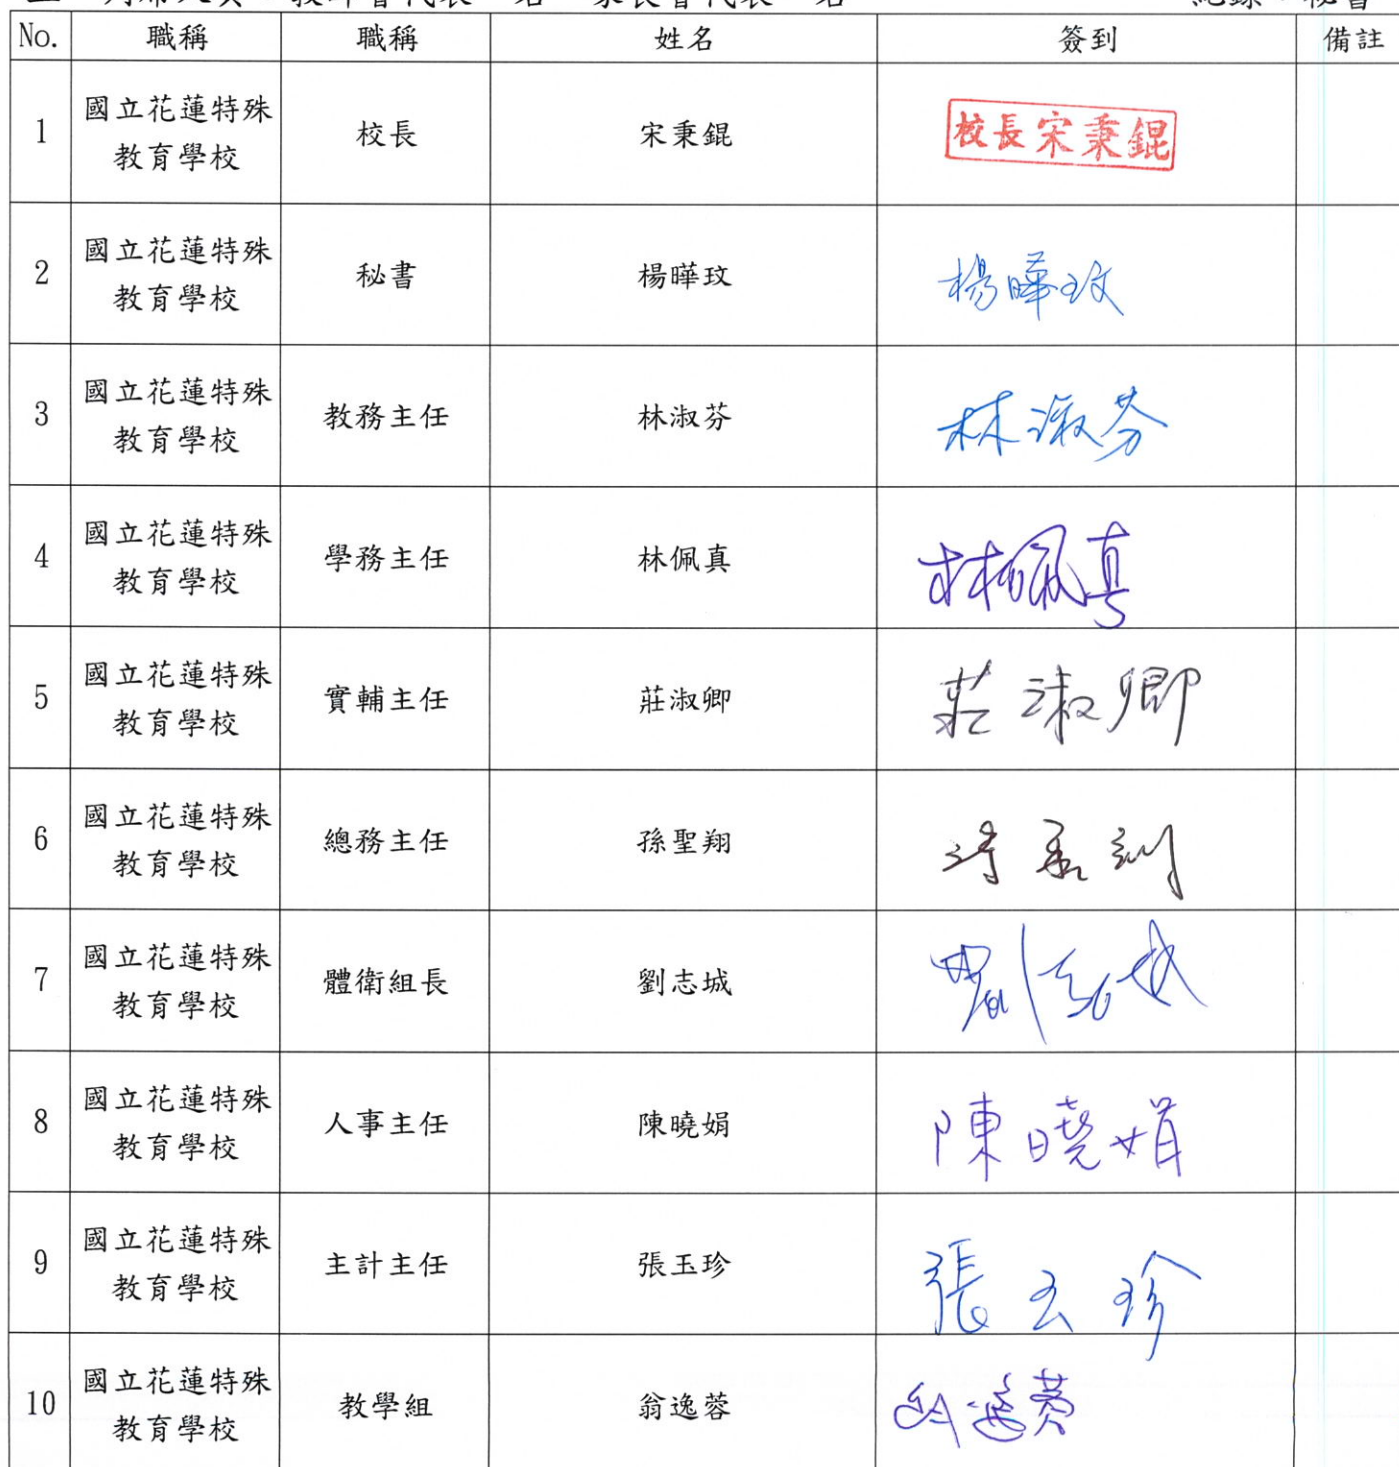 No. 職稱 職稱 姓名 簽到 備註
1 國立花蓮特殊教育學校 校長 宋秉錕 校長宋秉錕
2 國立花蓮特殊教育學校 秘書 楊曄玟 楊曄玟
3 國立花蓮特殊教育學校 教務主任 林淑芬 林淑芬
4 國立花蓮特殊教育學校 學務主任 林佩真 林佩真
5 國立花蓮特殊教育學校 實輔主任 莊淑卿 莊淑卿
6 國立花蓮特殊教育學校 總務主任 孫聖翔
7 國立花蓮特殊教育學校 體衛組長 劉志城 劉志城
8 國立花蓮特殊教育學校 人事主任 陳曉娟 陳曉娟
9 國立花蓮特殊教育學校 主計主任 張玉珍 張玉珍
10 國立花蓮特殊教育學校 教學組 翁逸蓉 翁逸蓉